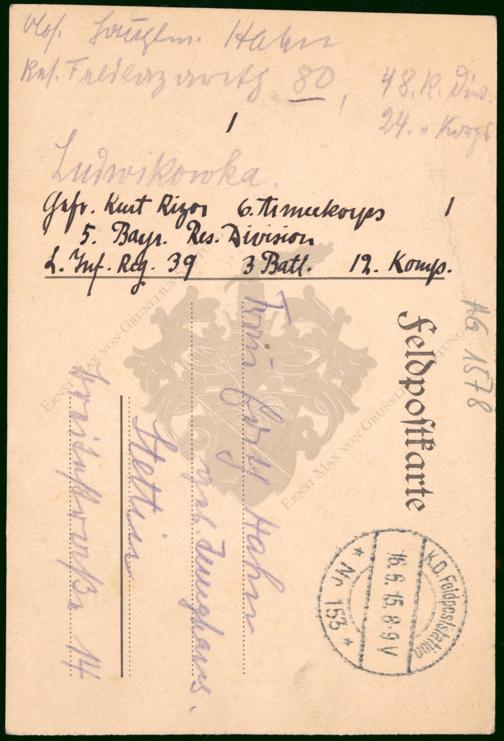 Abs. Hahn
Res. Feldlazarett 80, 48. R. Div.
24. " Korps
Ludwikowka.
Gefr. Kurt 6. Armeekorps
5. Bayr. Res. Division
L. Inf. Reg. 39 3 Batl. 12. Komp.
Feldpostkarte
Hahn
geb.
Stettin
14
K.D. Feldpoststation
16.6.15. 8-9 V
* Nr. 153 *
AG 1578
ERNST MAX VON GRUNELIUS
ERNST MAX VON GRUNELIUS